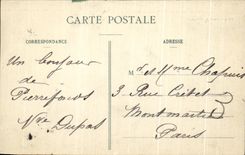 CARTE POSTALE
CORRESPONDANCE
ADRESSE
Un bonjour
de
Pierrefonds
Vve Dupas
M. et Mme Chapuis
3 Rue Cretet
Montmartre
Paris